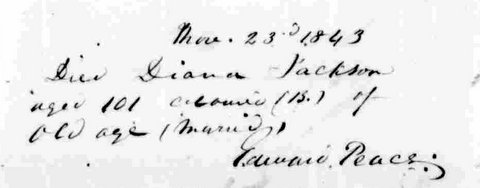 Nov. 23d 1843
Died Diana Jackson
aged 101 coloured (B.) of
old age (married)
Edward Peace.